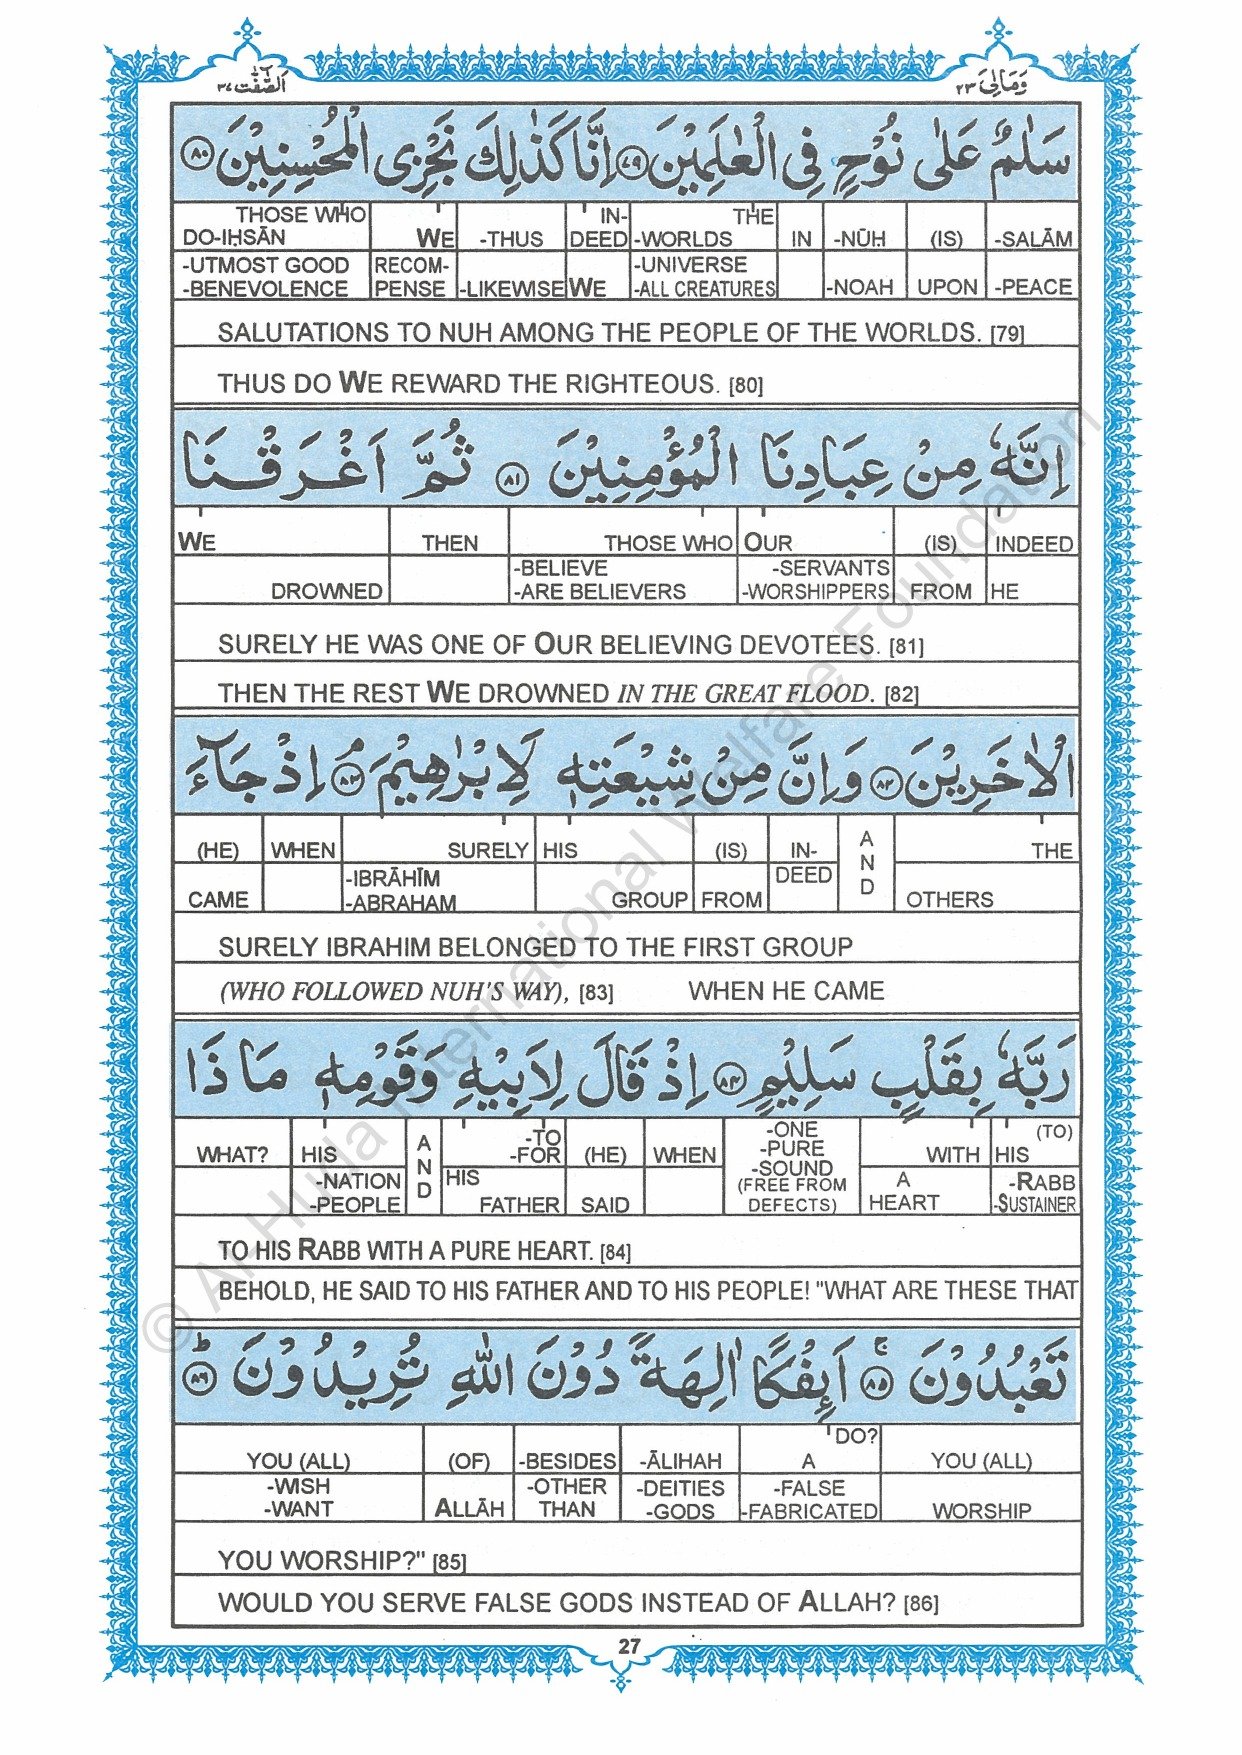 وَمَالِىَ ٢٣ اَلصّٰٓفّٰت ٣٧
سَلٰمٌ عَلٰى نُوْحٍ فِى الْعٰلَمِيْنَ ٧٩ اِنَّا كَذٰلِكَ نَجْزِى الْمُحْسِنِيْنَ ٨٠
THOSE WHO WE -THUS IN- THE IN -NŪḤ (IS) -SALĀM
DO-IḤSĀN DEED -WORLDS
-UTMOST GOOD RECOM- -LIKEWISE WE -UNIVERSE -NOAH UPON -PEACE
-BENEVOLENCE PENSE -ALL CREATURES
SALUTATIONS TO NUH AMONG THE PEOPLE OF THE WORLDS. [79]
THUS DO WE REWARD THE RIGHTEOUS. [80]
اِنَّهٗ مِنْ عِبَادِنَا الْمُؤْمِنِيْنَ ٨١ ثُمَّ اَغْرَقْنَا
WE THEN THOSE WHO OUR (IS) INDEED
DROWNED -BELIEVE -SERVANTS FROM HE
-ARE BELIEVERS -WORSHIPPERS
SURELY HE WAS ONE OF OUR BELIEVING DEVOTEES. [81]
THEN THE REST WE DROWNED IN THE GREAT FLOOD. [82]
الْاٰخَرِيْنَ ٨٢ وَاِنَّ مِنْ شِيْعَتِهٖ لَاِبْرٰهِيْمَ ٨٣ اِذْ جَآءَ
(HE) WHEN SURELY HIS (IS) IN- AND THE
CAME -IBRĀHĪM GROUP FROM DEED OTHERS
-ABRAHAM
SURELY IBRAHIM BELONGED TO THE FIRST GROUP
(WHO FOLLOWED NUH'S WAY), [83] WHEN HE CAME
رَبَّهٗ بِقَلْبٍ سَلِيْمٍ ٨٤ اِذْ قَالَ لِاَبِيْهِ وَقَوْمِهٖ مَاذَا
WHAT? HIS AND -TO (HE) WHEN -ONE WITH HIS (TO)
-FOR -PURE
-NATION HIS SAID -SOUND A -RABB
-PEOPLE FATHER (FREE FROM HEART -SUSTAINER
DEFECTS)
TO HIS RABB WITH A PURE HEART. [84]
BEHOLD, HE SAID TO HIS FATHER AND TO HIS PEOPLE! "WHAT ARE THESE THAT
تَعْبُدُوْنَ ٨٥ اَئِفْكًا اٰلِهَةً دُوْنَ اللّٰهِ تُرِيْدُوْنَ ٨٦
YOU (ALL) (OF) -BESIDES -ĀLIHAH DO? YOU (ALL)
A
-WISH ALLĀH -OTHER -DEITIES -FALSE WORSHIP
-WANT THAN -GODS -FABRICATED
YOU WORSHIP?" [85]
WOULD YOU SERVE FALSE GODS INSTEAD OF ALLAH? [86]
27
© Al-Huda International Welfare Foundation